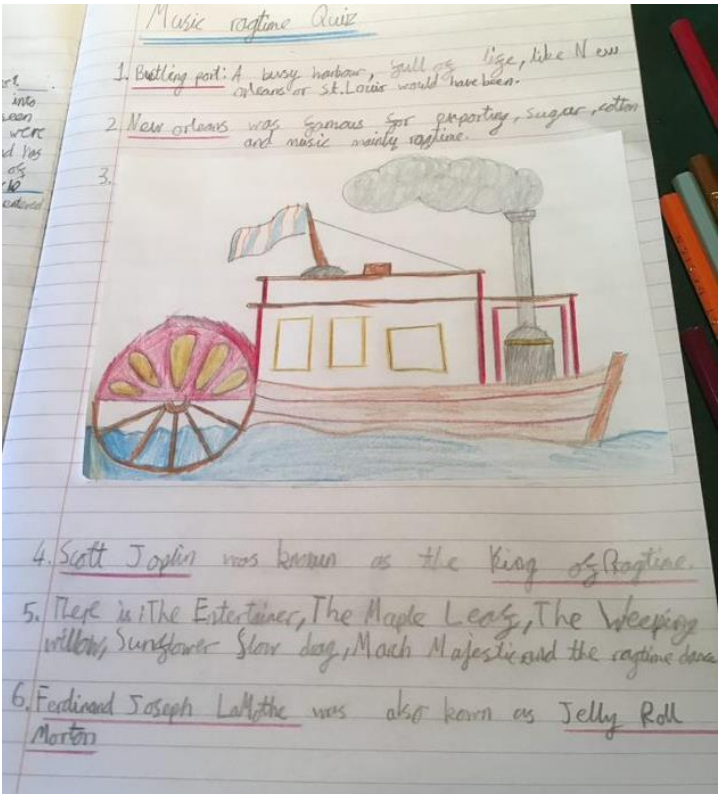 Music ragtime Quiz
1. Bustling port: A busy harbour, full of life, like New
orleans or St. Louis would have been.
2 New orleans was famous for exporting, sugar, cotton
and music mainly ragtime.
3.
4. Scott Joplin was known as the King of Ragtime.
5. There is: The Entertainer, The Maple Leaf, The Weeping
willow, Sunflower Slow drag, March Majestic and the ragtime dance
6. Ferdinand Joseph LaMothe was also known as Jelly Roll
Morton
into
were